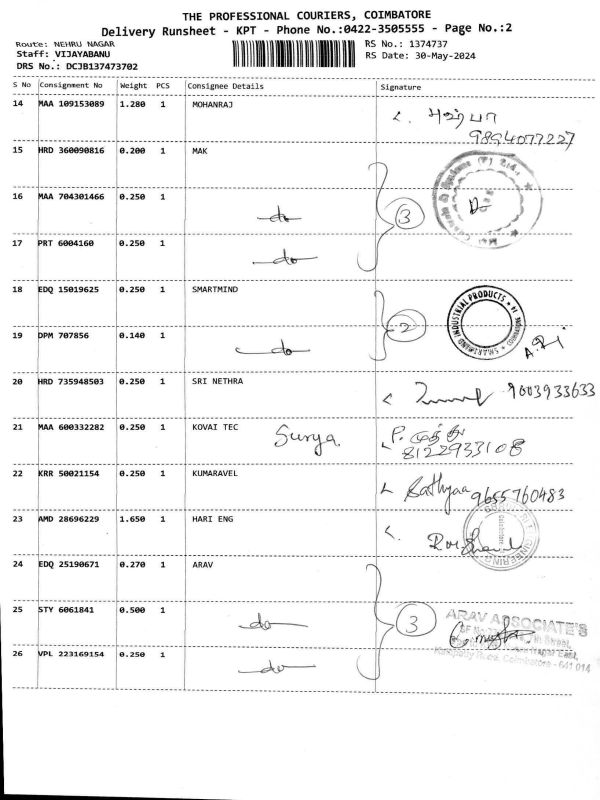 THE PROFESSIONAL COURIERS, COIMBATORE
Delivery Runsheet - KPT - Phone No.:0422-3505555 - Page No.:2
Route: NEHRU NAGAR
Staff: VIJAYABANU
DRS No.: DCJB137473702
RS No.: 1374737
RS Date: 30-May-2024
S No Consignment No Weight PCS Consignee Details Signature
14 MAA 109153089 1.280 1 MOHANRAJ
9894077227
15 HRD 360090816 0.200 1 MAK
16 MAA 704301466 0.250 1 do 3
17 PRT 6004160 0.250 1 do
18 EDQ 15019625 0.250 1 SMARTMIND
SMARTMIND INDUSTRIAL PRODUCTS
19 DPM 707856 0.140 1 do 2
20 HRD 735948503 0.250 1 SRI NETHRA 9003933633
21 MAA 600332282 0.250 1 KOVAI TEC Surya P. முத்து
8122933108
22 KRR 50021154 0.250 1 KUMARAVEL Sathyaa 9655760483
23 AMD 28696229 1.650 1 HARI ENG
24 EDQ 25190671 0.270 1 ARAV
25 STY 6061841 0.500 1 do 3
ARAV ASSOCIATE'S
26 VPL 223169154 0.250 1 do
Coimbatore - 641 014